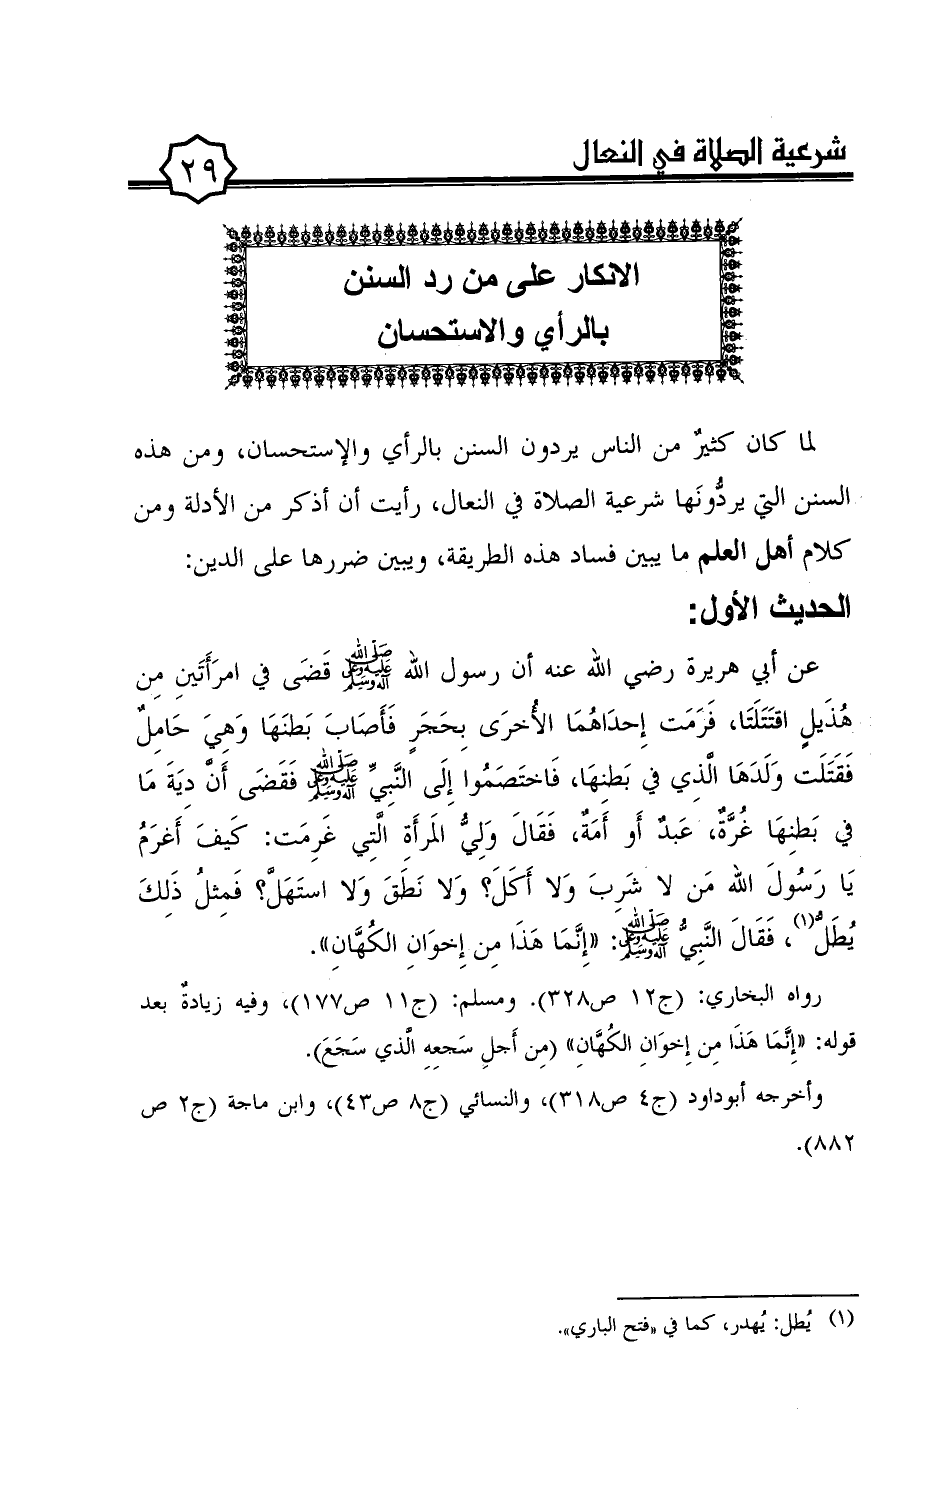 شرعية الصلاة في النعال
٢٩
الانكار على من رد السنن
بالرأي والاستحسان
لما كان كثيرٌ من الناس يردون السنن بالرأي والإستحسان، ومن هذه
السنن التي يردُّونَها شرعية الصلاة في النعال، رأيت أن أذكر من الأدلة ومن
كلام أهل العلم ما يبين فساد هذه الطريقة، ويبين ضررها على الدين:
الحديث الأول:
عن أبي هريرة رضي الله عنه أن رسول الله ﷺ قَضَى في امرَأَتَينِ مِن
هُذَيلٍ اقتَتَلَتَا، فَرَمَت إحدَاهُمَا الأُخرَى بِحَجَرٍ فَأَصَابَ بَطنَهَا وَهِيَ حَامِلٌ
فَقَتَلَت وَلَدَهَا الَّذِي في بَطنِهَا، فَاختَصَمُوا إلَى النَّبِيِّ ﷺ فَقَضَى أَنَّ دِيَةَ مَا
في بَطنِهَا غُرَّةٌ، عَبدٌ أَو أَمَةٌ، فَقَالَ وَلِيُّ المَرأَة الَّتِي غَرِمَت: كَيفَ أَغرَمُ
يَا رَسُولَ الله مَن لا شَرِبَ وَلا أَكَلَ؟ وَلا نَطَقَ وَلا استَهَلَّ؟ فَمِثلُ ذَلِكَ
يُطَلُّ(١)، فَقَالَ النَّبِيُّ ﷺ: «إنَّمَا هَذَا مِن إخوَانِ الكُهَّانِ».
رواه البخاري: (ج١٢ ص٣٢٨). ومسلم: (ج١١ ص١٧٧)، وفيه زيادةٌ بعد
قوله: «إنَّمَا هَذَا مِن إخوَانِ الكُهَّانِ» (مِن أَجلِ سَجعِهِ الَّذي سَجَعَ).
وأخرجه أبوداود (ج٤ ص٣١٨)، والنسائي (ج٨ ص٤٣)، وابن ماجة (ج٢ ص
٨٨٢).
(١) يُطل: يُهدر، كما في «فتح الباري».